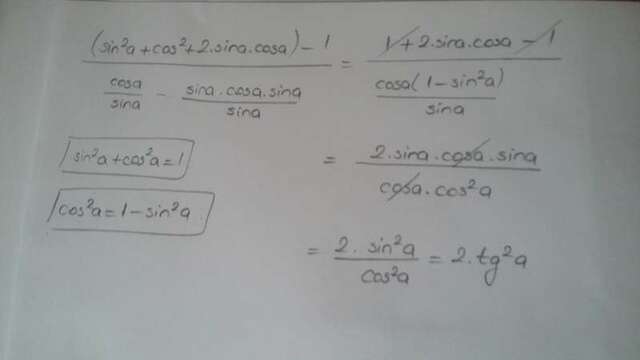 (sin²a+cos²+2.sina.cosa) - 1 / (cosa/sina - sina.cosa.sina/sina) = 1+2.sina.cosa - 1 / (cosa(1-sin²a)/sina)
sin²a+cos²a=1
= 2.sina.cosa.sina / cosa.cos²a
cos²a=1-sin²a
= 2.sin²a / cos²a = 2.tg²a